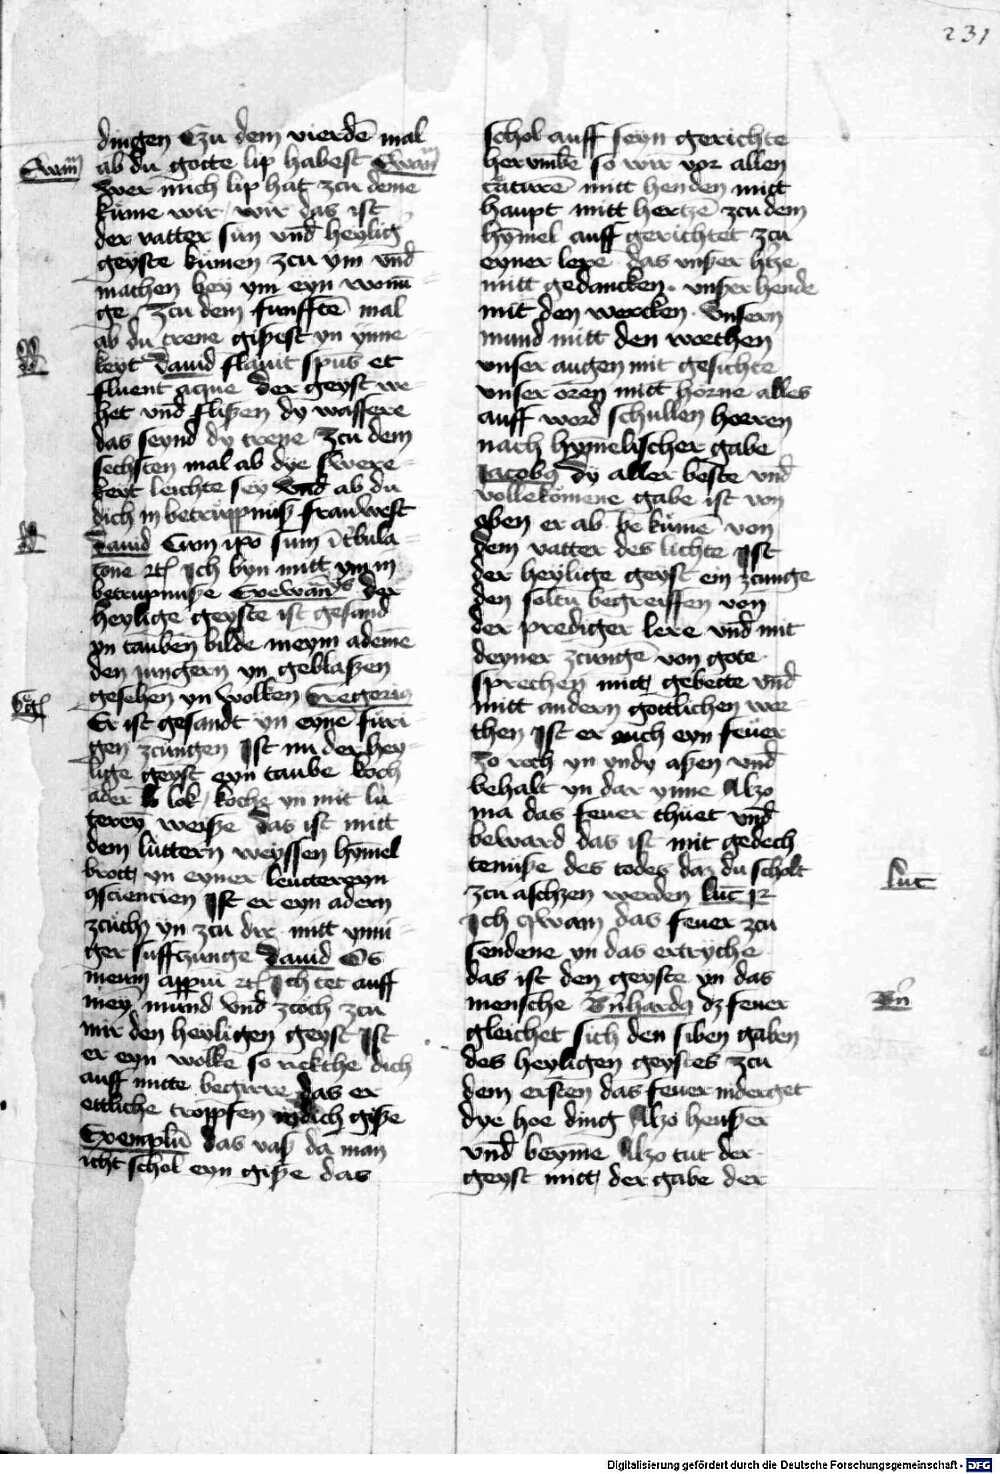 231
dingen Czu dem vierdē mal
ab du gotte lip habest Ewāḡ
Ewāḡ
wer mich lip hat zcu deme
kůme wir wir das ist
der vatter sun vnd heylig
geyste kůmen zcu ym vnd
machen bey ym eyn wonū
ge Zcu dem funfftē mal
ab du trene gißest yn ynne
keyt Dauid flauit spūs et
fluent aque der geyst we
het vnd flißen dy wassere
das seynd dy trene Zcu dem
sechsten mal ab dye swere
keyt leichte sey vnd ab du
dich in betrůppniß frauwest
Dauid Cum ipō sum ī tbula
cone Ich byn mitt ym in
betrupniße Ewewan der
heylige geyste ist gesand
yn tauben bilde meym ademe
den jungern yn geblaßen
gesehen yn wolken Gregoriꝯ
Greḡ
Er ist gesandt yn eyne fůri
gen zcungen Ist nu der hey
lige geyst eyn taube koch
ader lok koche yn mit lu
terey weisze das ist mitt
dem lůttern weyssen hȳmel
brott yn eyner leuttereyn
ꝯsciencien Ist er eyn adem
zcuch yn zcu dir mitt ynni
ger suffczunge Dauid Os
meum appui Ich tet auff
mey mund vnd zcoch zcu
mir den heyligen geyst Ist
er eyn wolke so rekche dich
auff mitte begirre das er
ettliche troppfen in dich giße
Exemplū das vaß da man
icht schol eyn giße das
schol auff seyn gerichte
her vmbe so wir vor allen
creaturē mitt henden mitt
haupt mitt hertzē zcu dem
hȳmel auff gerichtet zcu
eyner lere das vnßer htze
mitt gedancken vnßer hende
mit den wercken Vnsern
mund mitt den worthen
vnser augen mit gesichte
vnser oren mitt horne alles
auff word schullen horren
nach hymelischer gabe
Jacobꝯ Dy aller beste vnd
vollekomene gabe ist von
oben er ab be kůme von
dem vatter des lichte Ist
der heylige geyst ein zcunge
den soltu begreiffen von
der prediger lere vnd mit
deyner zcungē von gote
sprechen mitt gebette vnd
mitt andern gottlichen wor
then Ist er auch eyn feuer
Zo rech yn yndy aßen vnd
behalt yn dar ynne Alzo
ma das feuer thuet vnd
beward das ist mit gedech
teniße des todes daz du scholt
zcu aschzen werden luc̄
luc̄
Ich qwam das feuer zcu
sendene yn das ertryche
das ist den geyste yn das
mensche Bnhardꝯ dz feuer
Bn̄
gleichet sich den siben gaben
des heyligen geystes zcu
dem ersten das feuer niderget
dye hoe ding Alzo heußer
vnd beyme Alzo tut der
geyst mitt der gabe der
Digitalisierung gefördert durch die Deutsche Forschungsgemeinschaft - DFG